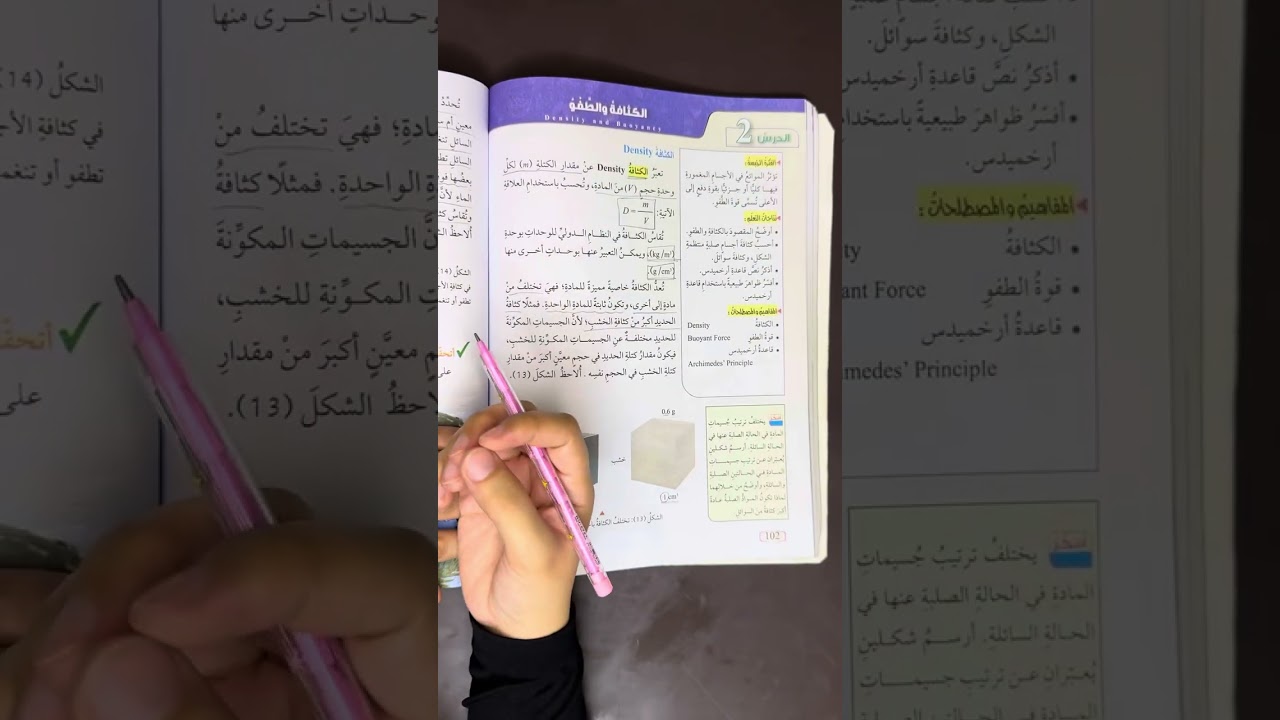 الكثافةُ والطَّفْوُ
Density and Buoyancy
الدرس 2
الفكرةُ الرئيسةُ:
تؤثرُ الموائعُ في الأجسامِ المغمورةِ
فيها كليًّا أو جزئيًّا بقوةِ دفعٍ إلى
الأعلى تُسمّى قوةَ الطفوِ.
نتاجاتُ التعلُّمِ:
• أوضحُ المقصودَ بالكثافةِ والطفوِ.
• أحسبُ كثافةَ أجسامٍ صلبةٍ منتظمةِ
الشكلِ، وكثافةَ سوائلَ.
• أذكرُ نصَّ قاعدةِ أرخميدس.
• أفسّرُ ظواهرَ طبيعيةً باستخدامِ قاعدةِ
أرخميدس.
المفاهيمُ والمصطلحاتُ:
• الكثافةُ Density
• قوةُ الطفوِ Buoyant Force
• قاعدةُ أرخميدس
Archimedes’ Principle
يختلفُ ترتيبُ جُسيماتِ
المادةِ في الحالةِ الصلبةِ عنها في
الحالةِ السائلةِ. أرسمُ شكلينِ
يُعبّرانِ عن ترتيبِ جسيماتِ
المادةِ في الحالتينِ الصلبةِ
والسائلةِ، وأوضحُ من خلالِهما
لماذا تكونُ الموادُّ الصلبةُ عادةً
أكبرَ كثافةً منَ السوائلِ
102
الكثافةُ Density
تعبّرُ الكثافةُ Density عنْ مقدارِ الكتلةِ (m) لكلِّ
وحدةِ حجمٍ (V) منَ المادةِ، وتُحسبُ باستخدامِ العلاقةِ
الآتيةِ: D = m/V
تُقاسُ الكثافةُ في النظامِ الدوليِّ للوحداتِ بوحدةِ
(kg/m³)، ويمكنُ التعبيرُ عنها بوحداتٍ أخرى منها
(g/cm³).
تُعدُّ الكثافةُ خاصيةً مميزةً للمادةِ؛ فهيَ تختلفُ منْ
مادةٍ إلى أخرى، وتكونُ ثابتةً للمادةِ الواحدةِ. فمثلًا كثافةُ
الحديدِ أكبرُ منْ كثافةِ الخشبِ؛ لأنَّ الجسيماتِ المكوّنةَ
للحديدِ مختلفةٌ عنِ الجسيماتِ المكوِّنةِ للخشبِ،
فيكونُ مقدارُ كتلةِ الحديدِ في حجمٍ معيَّنٍ أكبرَ منْ مقدارِ
كتلةِ الخشبِ في الحجمِ نفسِه. أُلاحظُ الشكلَ (13).
0.6 g
خشب
(1) cm³
الشكلُ (13): تختلفُ الكثافةُ